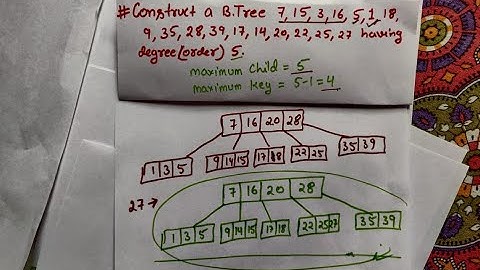 #Construct a B.Tree 7, 15, 3, 16, 5, 1, 18,
9, 35, 28, 39, 17, 14, 20, 22, 25, 27 having
degree(order) 5.
maximum child = 5
maximum key = 5-1=4
7 16 20 28
1 3 5 9 14 15 17 18 22 25 35 39
27→
7 16 20 28
1 3 5 9 14 15 17 18 22 25 27 35 39